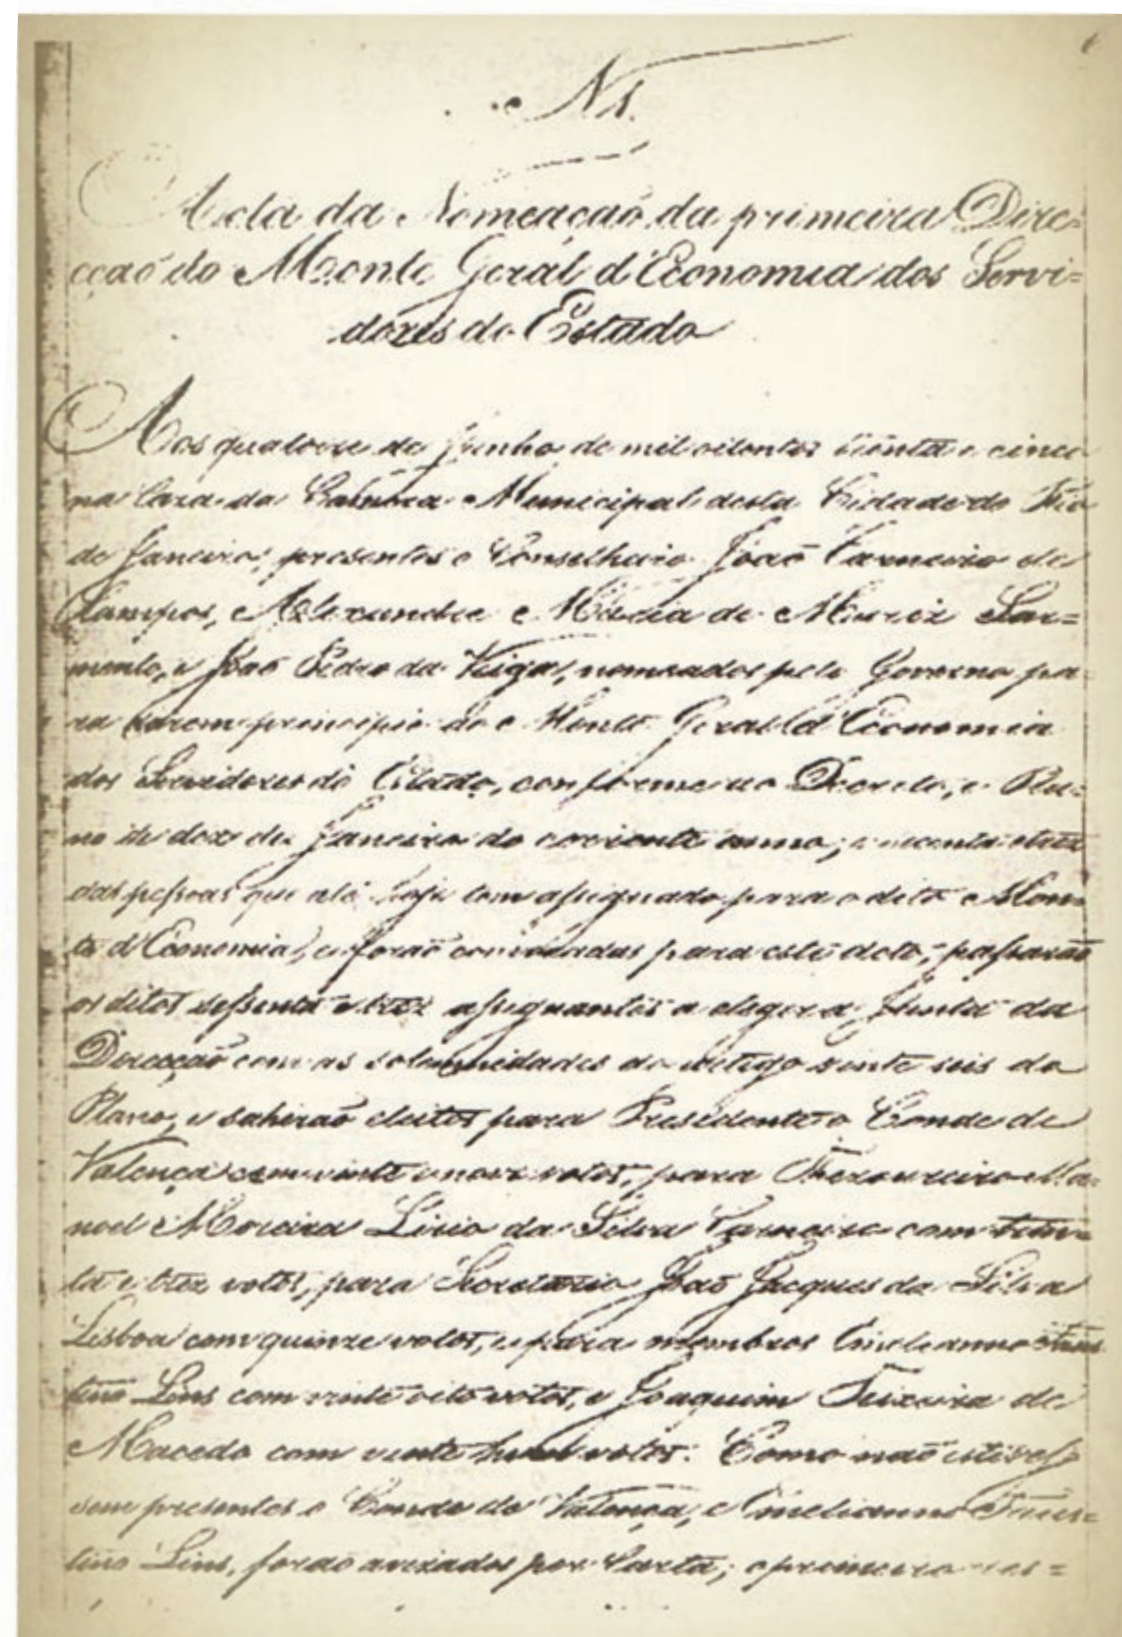 N 1.
Acta da Nomeação da primeira Dire-
cção do Monte Geral d'Economia dos Servi-
dores do Estado
Aos quatorze de Junho de mil oitontos trinta e cinco
na Caza da Camara Municipal desta Cidade do Rio
de Janeiro, presentes o Conselheiro João Carneiro de
Campos, Alexandre Maria de Mariz Sar=
mento, e João Pedro da Veiga, nomeados pelo Governo pa-
ra darem principio ao Monte Geral d'Economia
dos Servidores do Estado, conforme ao Decreto, e Pla=
no de dez de Janeiro do corrente anno; e trez
das pessoas que até hoje tem assignado para o dito Mon-
te d'Economia, e forão convidadas para este acto; passarão
os ditos sessenta e trez assignantes a eleger a Junta da
Direcção com as solemnidades do artigo vinte seis do
Plano, e sahirão eleitos para Presidente o Conde de
Valença com vinte e nove votos, para Thezoureiro Ma-
noel Moreira Lirio da Silva Carneiro com trin=
ta e trez votos, para Secretario João Jacques da Silva
Lisboa com quinze votos, e para membros Emelianno Faus-
tino Lins com vinte oito votos, e Joaquim Teixeira de
Macedo com vinte hum votos. Como não estives-
sem presentes o Conde de Valença, e Emelianno Faus=
tino Lins, forão avizados por Carta; o primeiro res=